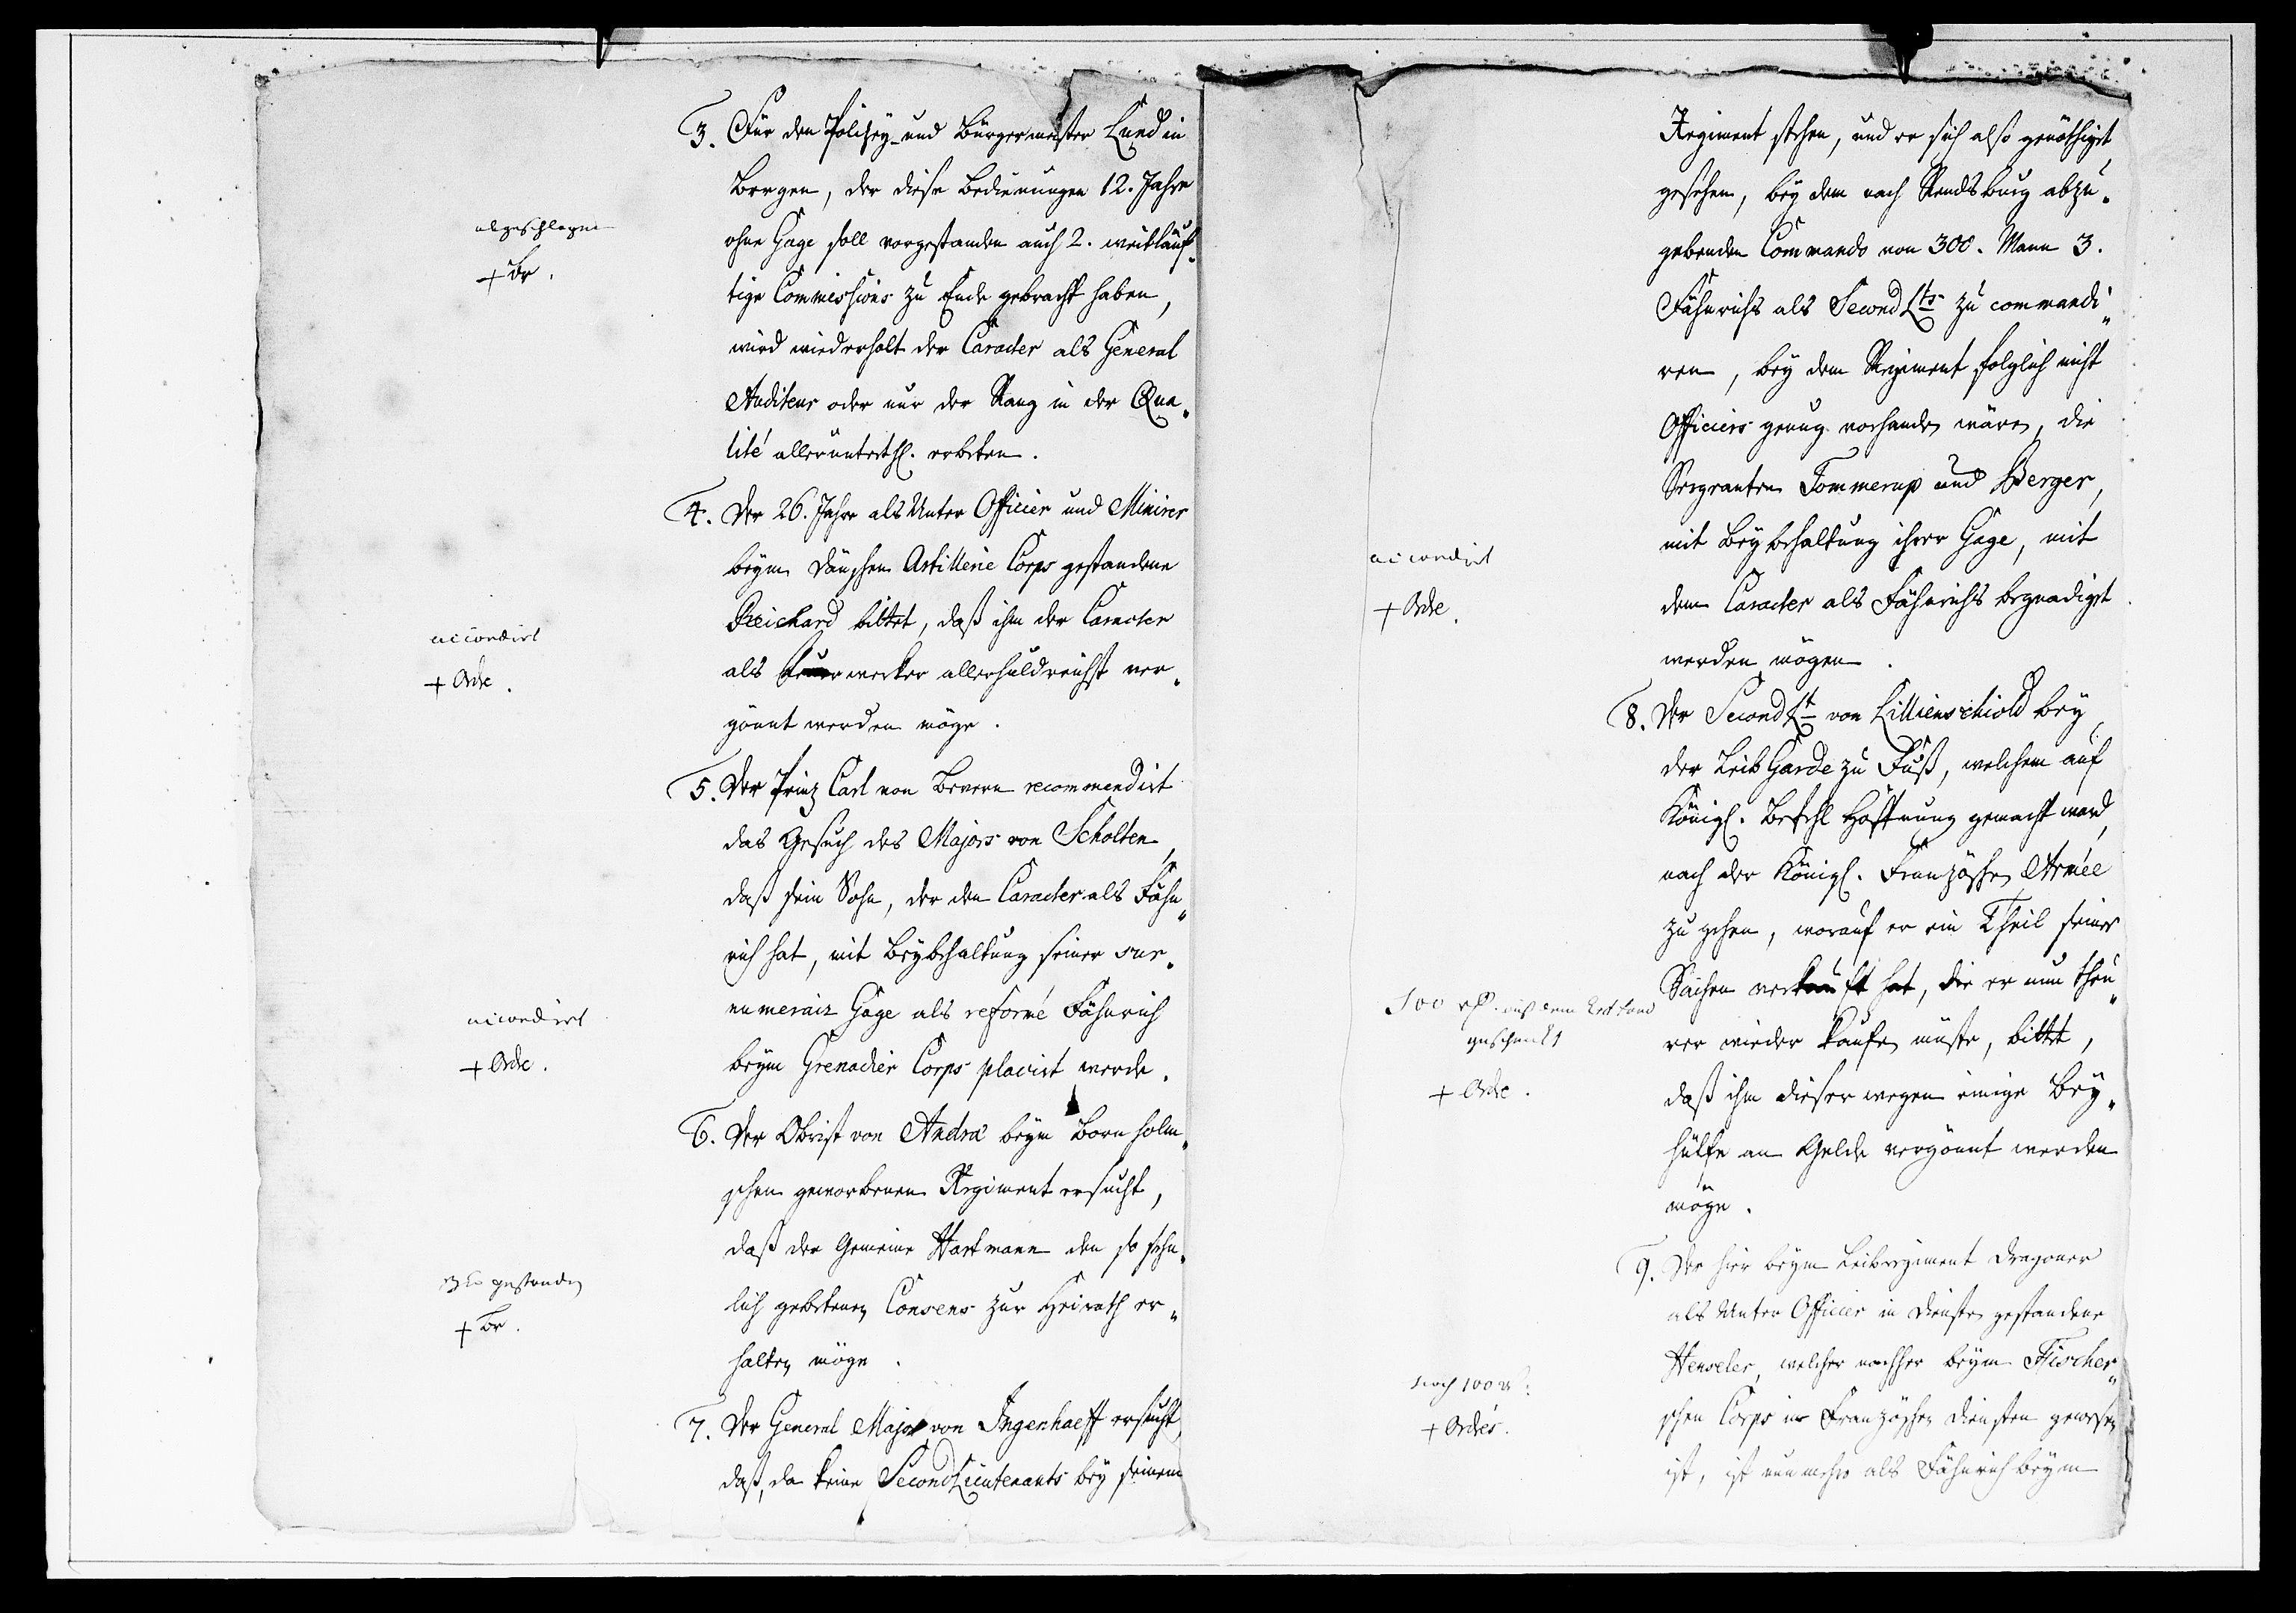 3. Für den Policey- und Bürgermeister Lund in
Bergen, der diese Bedienungen 12. Jahre
ohne Gage soll vorgestanden auch 2. weitläuf-
tige Commissions zu Ende gebracht haben,
wird wiederholt der Caracter als General
Auditeur oder nur der Rang in der Qua-
lité allerunterthl. erbeten.
abgeschlagen
+ Br.
4. Der 26. Jahre als Unter Officier und Minirer
beym Dänschen Artillerie Corps gestandene
Reichard bittet, daß ihm der Caracter
als Feuerwerker allerhuldreichst ver-
gönnt werden möge.
accordirt
+ Ordre.
5. Der Prinz Carl von Bevern recommendirt
das Gesuch des Majors von Scholten,
daß sein Sohn, der den Caracter als Fähn-
rich hat, mit Beybehaltung seiner sur-
numerair Gage als reformé Fähnrich
beym Grenadier Corps placirt werde.
accordirt
+ Ordre.
6. Der Obrist von Andræ beym Bornholm-
schen geworbenen Regiment ersucht,
daß der Gemeine Hartmann den so sehn-
lich gebetenen Consens zur Heirath er-
halten möge.
gestanden
+ Br.
7. Der General Major von Ingenhaeff ersucht,
daß, da keine Second Lieutenants bey seinem
Regiment stehen, und er sich also genöthigt
gesehen, bey dem nach Rendsburg abzu-
gebenden Commando von 300. Mann 3.
Fähnrichs als Second Lts zu commandi-
ren, bey dem Regiment folglich nicht
Officiers genug vorhanden wären, die
Sergeanten Tommerup und Berger,
mit Beybehaltung ihrer Gage, mit
dem Caracter als Fähnrichs begnadigt
werden mögen.
accordirt
+ Ordre.
8. Der Second Lt von Lillienschiold bey
der Leib Garde zu Fuß, welchem auf
Königl. Befehl Hoffnung gemacht ward,
nach der Königl. Französchen Armée
zu gehen, worauf er ein Theil seiner
Sachen verkauft hat, die er nun theu-
rer wieder kaufen müste, bittet,
daß ihm dieserwegen einige Bey-
hülfe an Gelde vergönnt werden
möge.
100 rß. aus dem
geschenkt
+ Ordre.
9. Der hier beym Leibregiment Dragoner
als Unter Officier in Diensten gestandene
Henseler, welcher nachher beym Fischer-
schen Corps in Französchen Diensten gewesen
ist, ist nunmehro als Fähnrich beym
noch 100 r
+ Ordres.